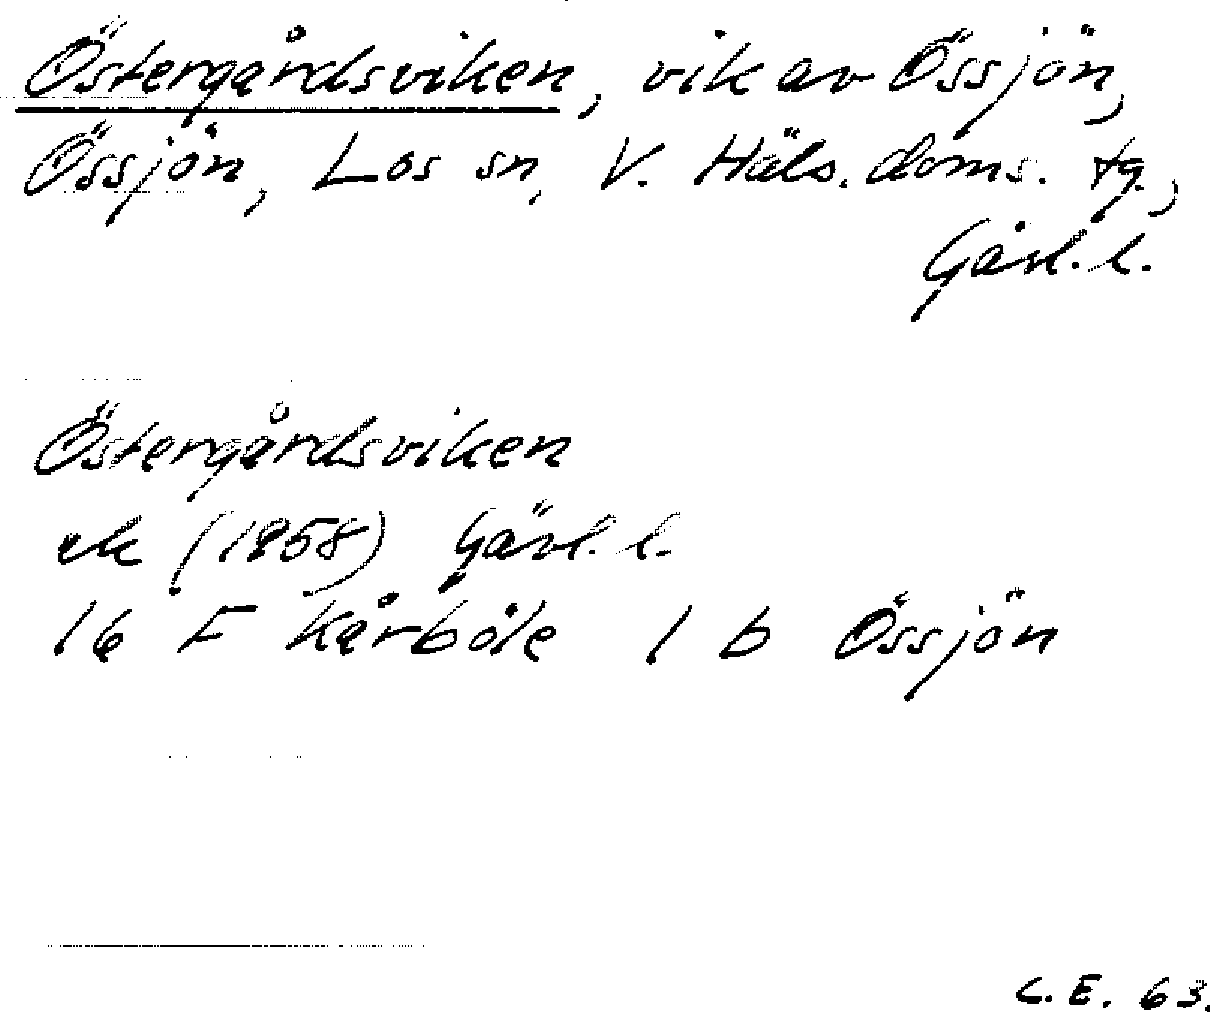 Östergårdsviken, vik av Össjön,
Össjön, Los sn, V. Häls. doms. tg.,
Gävl. l.
Östergårdsviken
ek (1958) Gävl. l.
16 F Kårböle 1 b Össjön
C.E. 63.